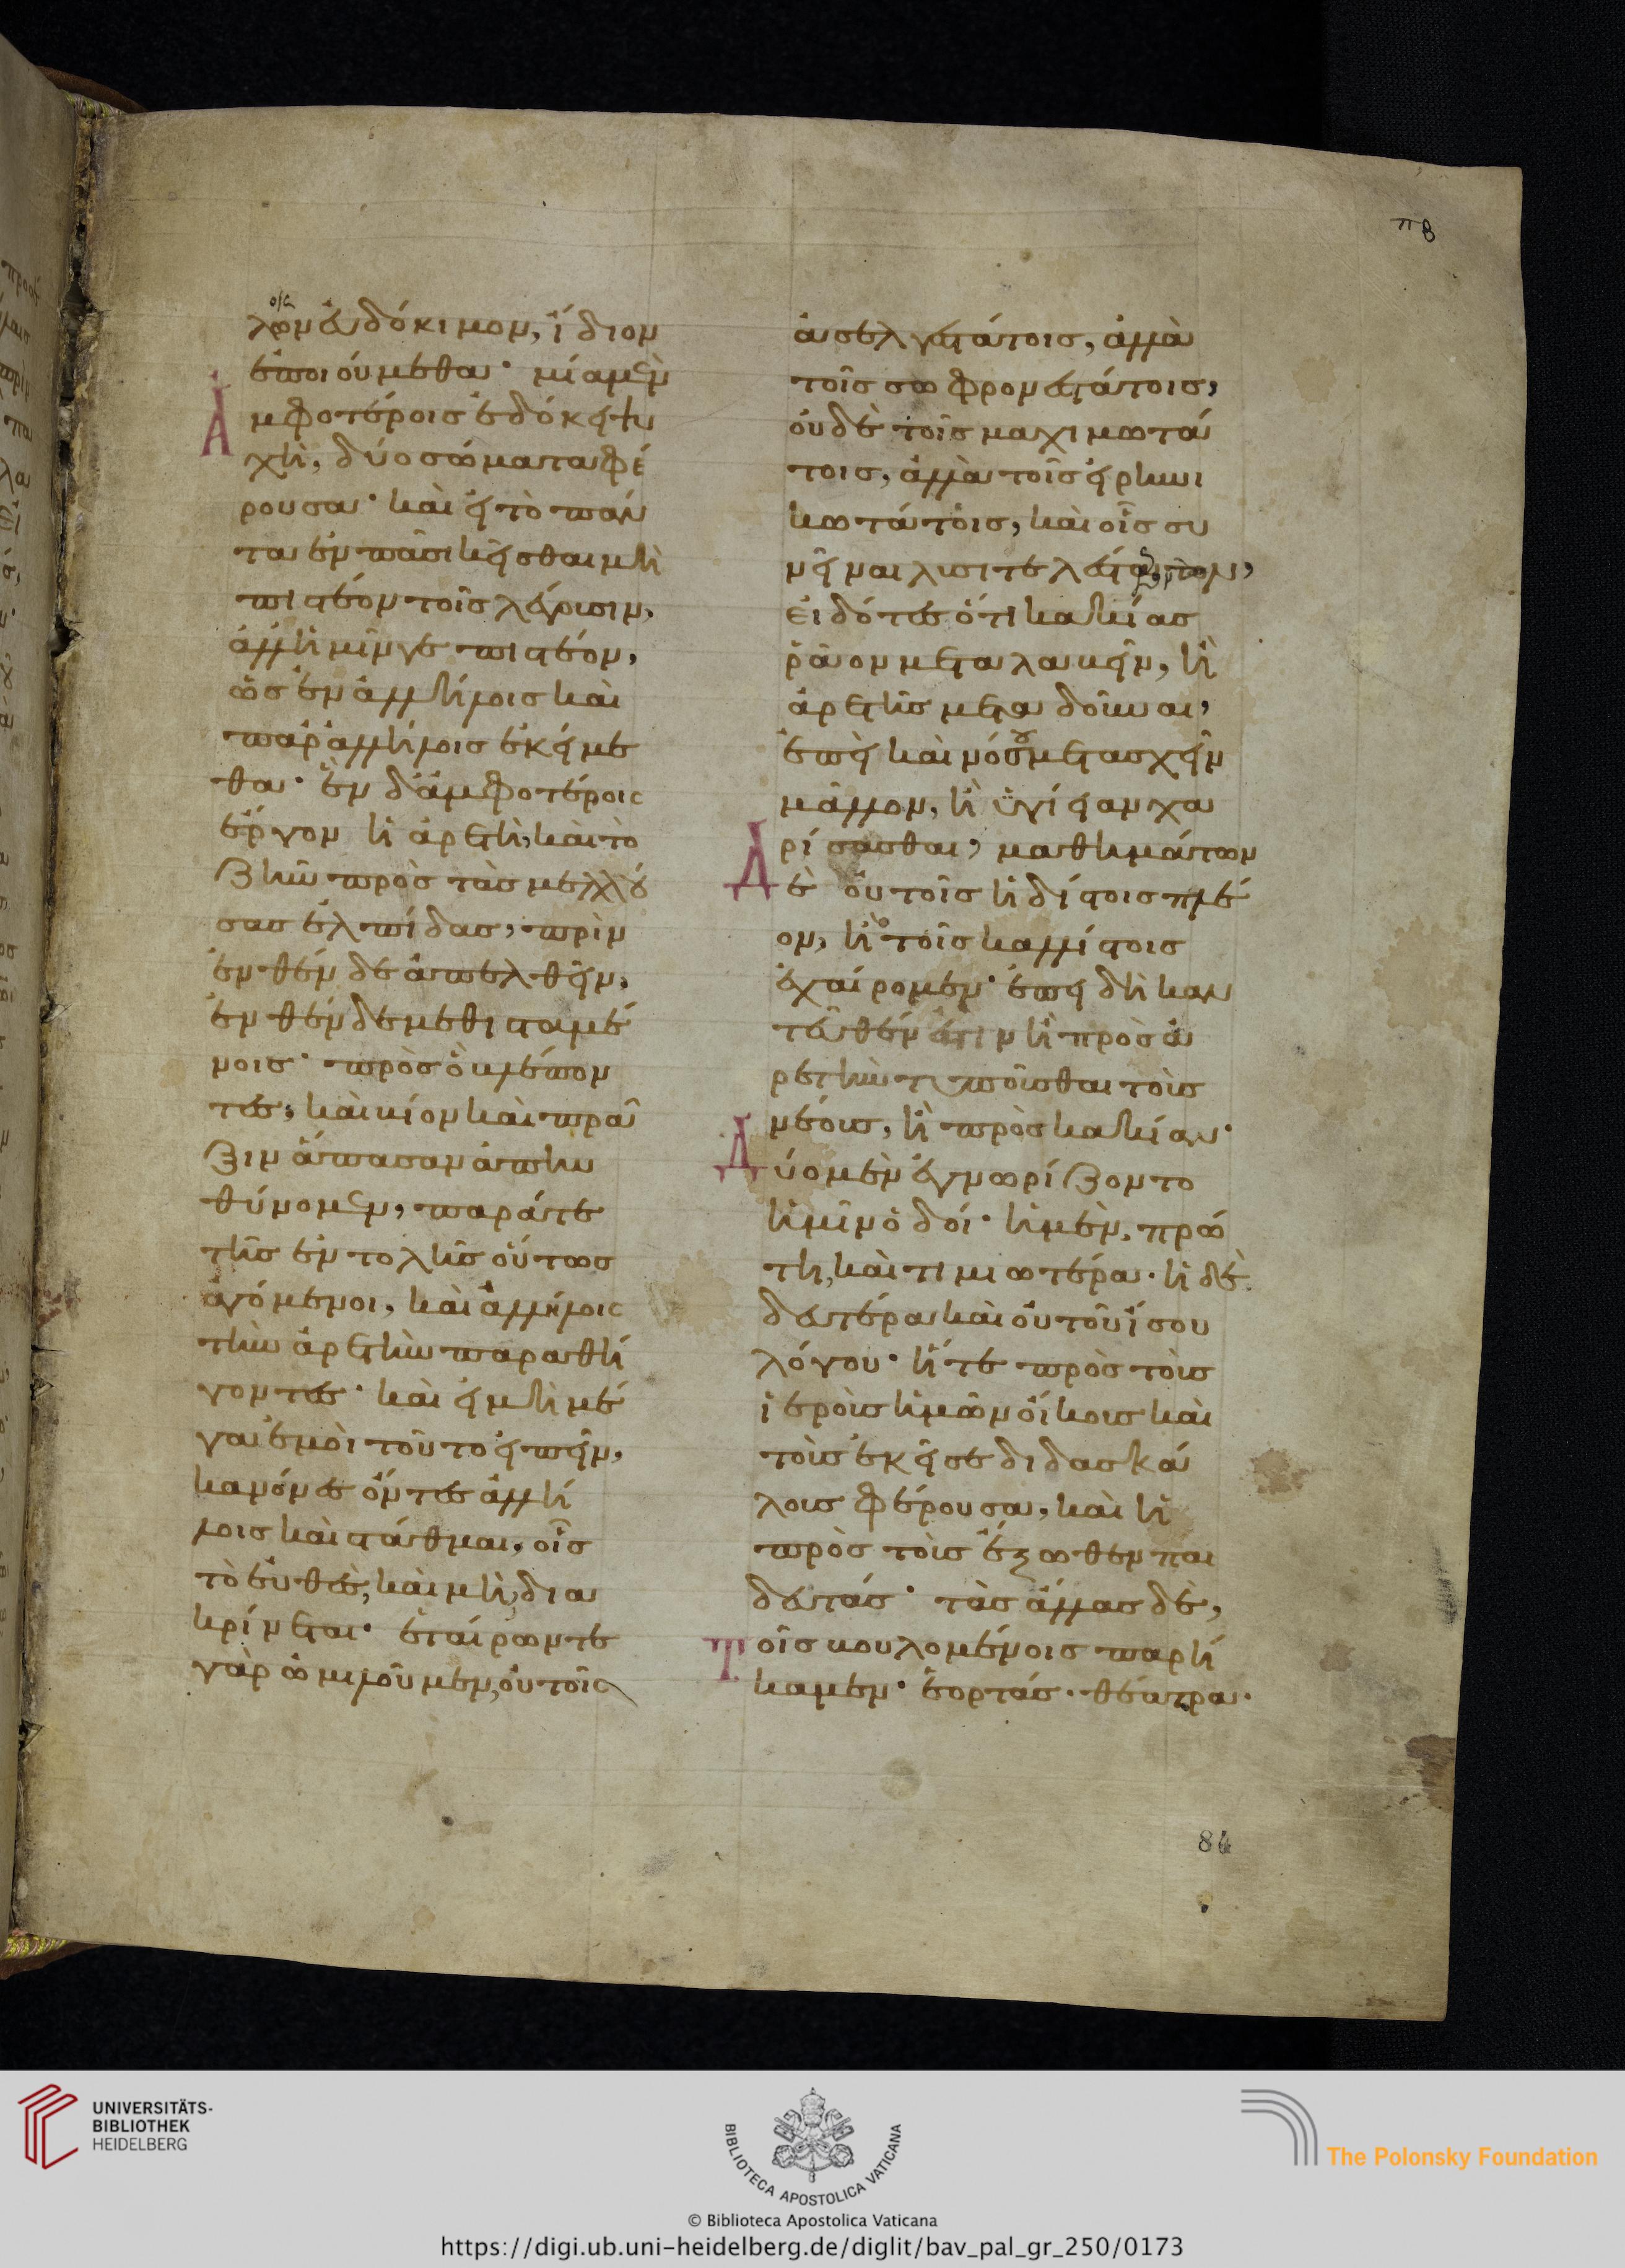 πβ
λων εὐδόκιμον, ἴδιον
ἐποιούμεθα· μία μὲν
ἀμφοτέροις ἐδόκει ψυ
χὴ, δύο σώματα φέ
ρουσα· καὶ εἰ τὸ πάν
τα ἐν πᾶσι κεῖσθαι μὴ
πιστέον τοῖς λέγουσιν,
ἀλλ' ἡμῖν γε πιστέον,
ὡς ἐν ἀλλήλοις καὶ
παρ' ἀλλήλοις ἐκείμε
θα· ἓν δ' ἀμφοτέροις
ἔργον ἡ ἀρετὴ, καὶ τὸ
ζῆν πρὸς τὰς μελλού
σας ἐλπίδας, πρὶν
ἐνθένδε ἀπελθεῖν,
ἐνθένδε μεθισταμέ
νοις· πρὸς ὃ βλέπον
τες, καὶ βίον καὶ πρᾶ
ξιν ἅπασαν ἀπηυ
θύνομεν, παρά τε
τῆς ἐντολῆς οὕτως
ἀγόμενοι, καὶ ἀλλήλοις
τὴν ἀρετὴν παραθή
γοντες· καὶ εἰ μὴ μέ
γα ἐμοὶ τοῦτο εἰπεῖν,
κανόνες ὄντες ἀλλή
λοις καὶ στάθμαι, οἷς
τὸ εὐθὲς, καὶ μὴ, δια
κρίνεται· ἑταίρων τε
γὰρ ὡμιλοῦμεν, οὐ τοῖς
ἀσελγεστάτοις, ἀλλὰ
τοῖς σωφρονεστάτοις,
οὐδὲ τοῖς μαχιμωτά
τοις, ἀλλὰ τοῖς εἰρηνι
κωτάτοις, καὶ οἷς συ
νεῖναι λυσιτελέστατον,
εἰδότες ὅτι κακίας
ῥᾷον μεταλαβεῖν, ἢ
ἀρετῆς μεταδοῦναι,
ἐπεὶ καὶ νόσου μετασχεῖν
μᾶλλον, ἢ ὑγίειαν χα
ρίσασθαι, μαθημάτων
δὲ οὐ τοῖς ἡδίστοις πλέ
ον, ἢ τοῖς καλλίστοις
ἐχαίρομεν· ἐπειδὴ καν
τεῦθέν ἐστιν ἢ πρὸς ἀ
ρετὴν τυποῦσθαι τοὺς
νέους, ἢ πρὸς κακίαν·
Δύο μὲν ἐγνωρίζοντο
ἡμῖν ὁδοί· ἡ μὲν, πρώ
τη, καὶ τιμιωτέρα· ἡ δὲ
δευτέρα καὶ οὐ τοῦ ἴσου
λόγου· ἥ τε πρὸς τοὺς
ἱεροὺς ἡμῶν οἴκους καὶ
τοὺς ἐκεῖσε διδασκά
λους φέρουσα, καὶ ἡ
πρὸς τοὺς ἔξωθεν παι
δευτάς· τὰς ἄλλας δὲ,
Τοῖς βουλομένοις παρή
καμεν· ἑορτάς· θέατρα·
84
UNIVERSITÄTS-
BIBLIOTHEK
HEIDELBERG
BIBLIOTECA APOSTOLICA VATICANA
The Polonsky Foundation
© Biblioteca Apostolica Vaticana
https://digi.ub.uni-heidelberg.de/diglit/bav_pal_gr_250/0173